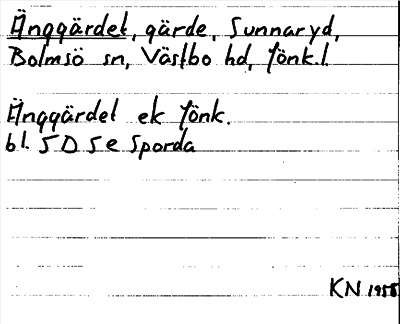 Änggärdet, gärde, Sunnaryd,
Bolmsö sn, Västbo hd, Jönk.l.
Änggärdet ek Jönk.
bl. 5D 5e Sporda
KN 1958